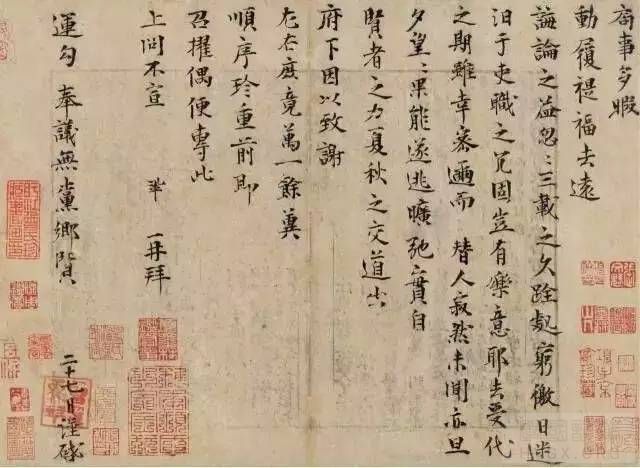 局事多暇
動履禔福去遠
誨論之益忽々三載之久跧處窮徼日迷
汩于吏職之冗固豈有樂意耶去受代
之期雖幸密邇而替人寂然未聞亦旦
夕望々果能遂逃曠弛實自
賢者之力夏秋之交道出
府下因以致謝
左右庶竟萬一餘冀
順序珍重前即
召擢偶便專此
上問不宣 鞏 再拜
運勾奉議無黨鄉賢 二十七日謹啓